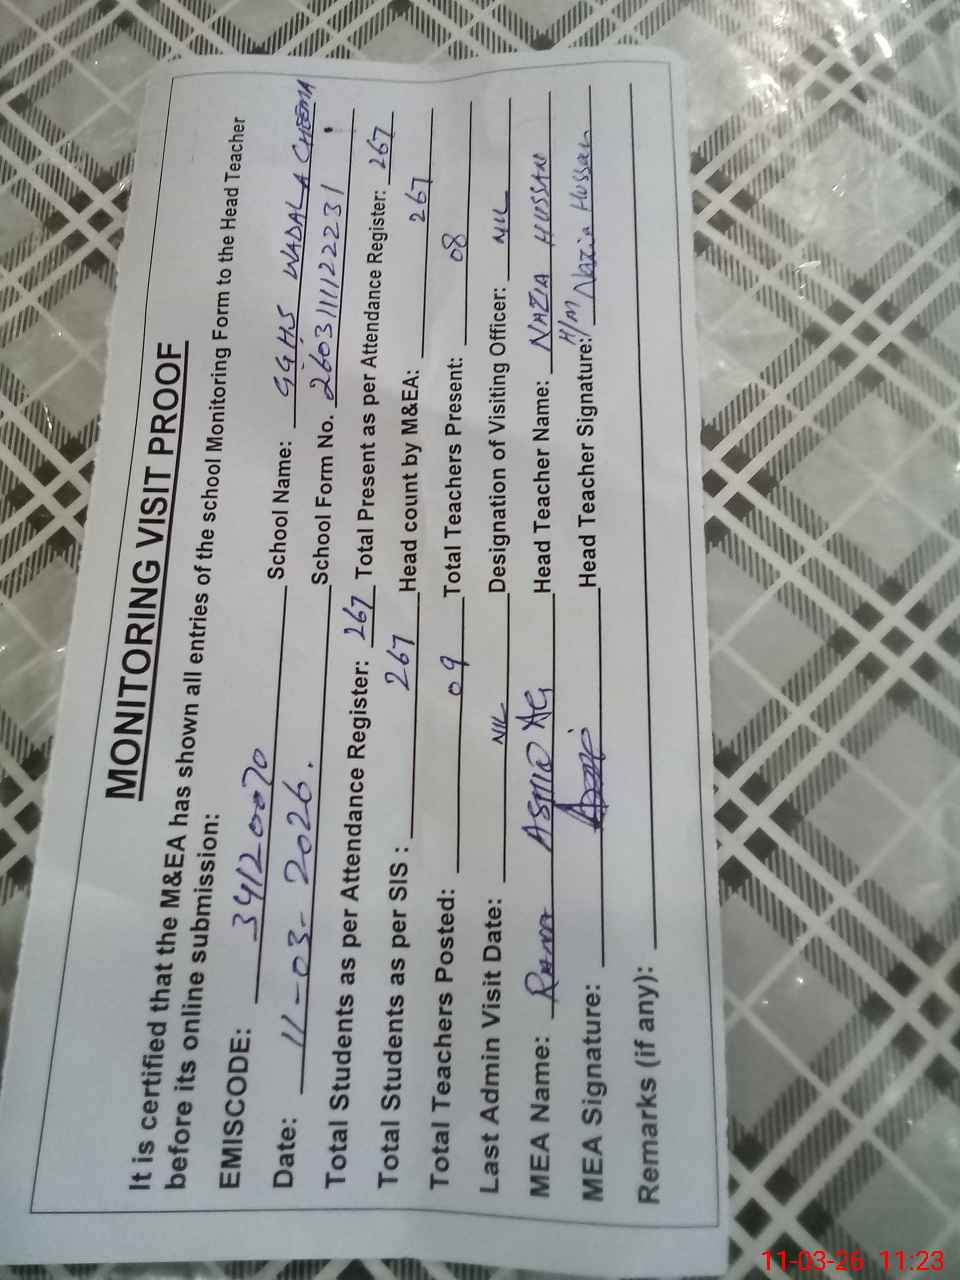 MONITORING VISIT PROOF
It is certified that the M&EA has shown all entries of the school Monitoring Form to the Head Teacher
before its online submission:
EMISCODE: 34120070 School Name: GGHS WADALA CHEEMA
Date: 11-03-2026. School Form No. 260311112231
Total Students as per Attendance Register: 267 Total Present as per Attendance Register: 267
Total Students as per SIS : 267 Head count by M&EA: 267
Total Teachers Posted: 09 Total Teachers Present: 08
Last Admin Visit Date: NIL Designation of Visiting Officer: NIL
MEA Name: Asmo Ag Head Teacher Name: NAZIA HUSSAN
MEA Signature: Head Teacher Signature: H/M Nazia Hussan
Remarks (if any):
11-03-26 11:23